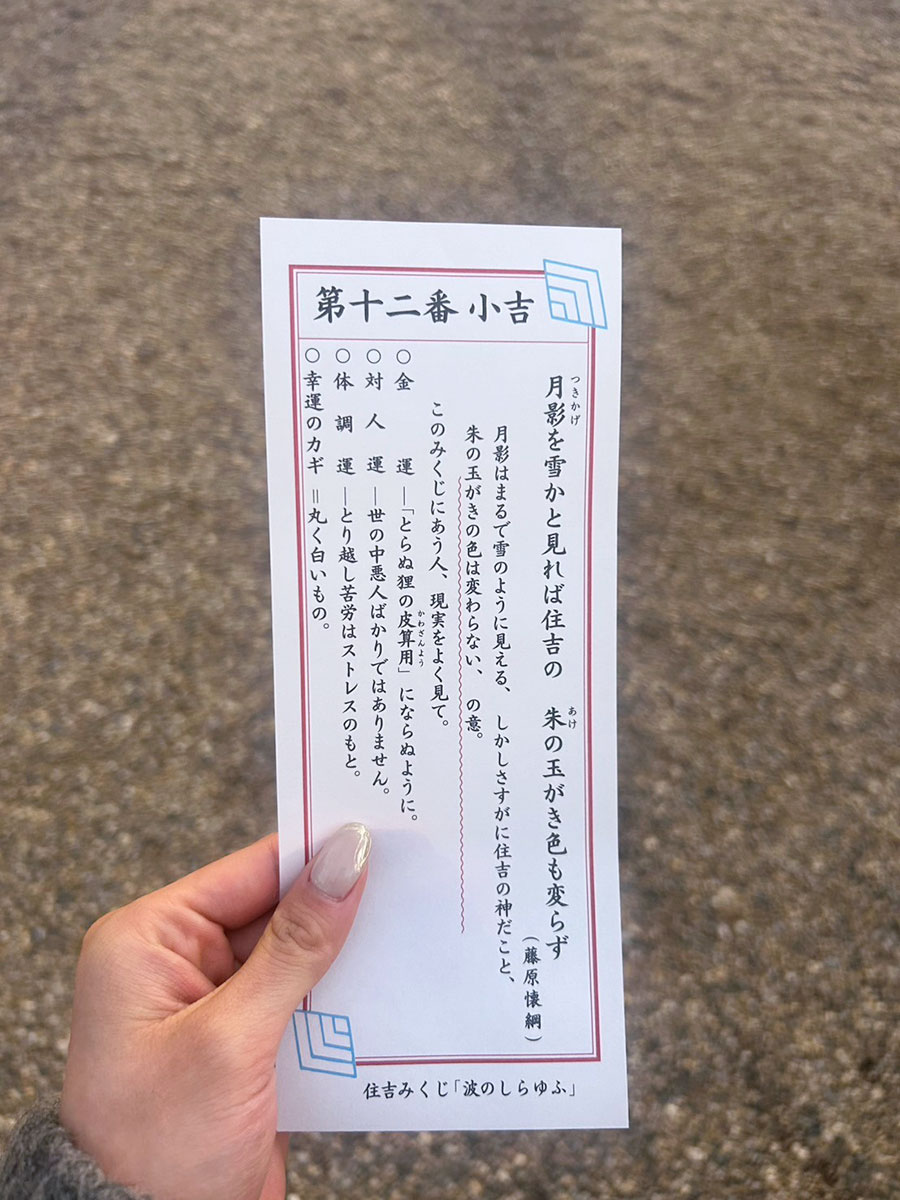 第十二番 小吉
月影を雪かと見れば住吉の 朱の玉がき色も変らず
つきかげ
あけ
(藤原懐綱)
月影はまるで雪のように見える、しかしさすがに住吉の神だこと、
朱の玉がきの色は変わらない、の意。
このみくじにあう人、現実をよく見て。
○金運―「とらぬ狸の皮算用」にならぬように。
かわざんよう
○対人運―世の中悪人ばかりではありません。
○体調運―とり越し苦労はストレスのもと。
○幸運のカギ=丸く白いもの。
住吉みくじ「波のしらゆふ」